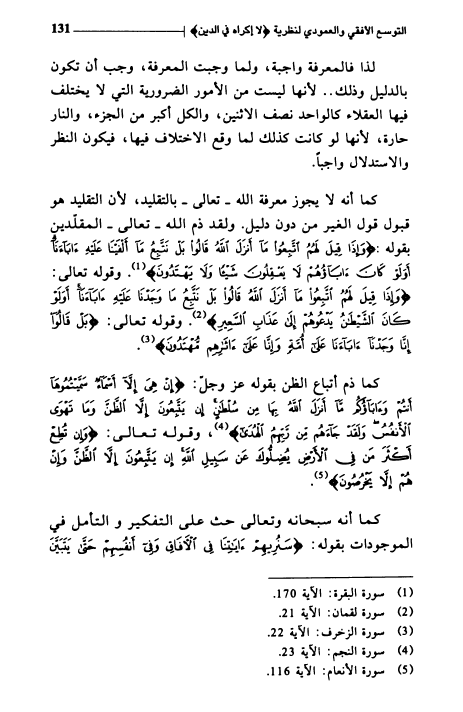 التوسع الأفقي والعمودي لنظرية ﴿لا إكراه في الدين﴾ | 131
لذا فالمعرفة واجبة، ولما وجبت المعرفة، وجب أن تكون
بالدليل وذلك.. لأنها ليست من الأمور الضرورية التي لا يختلف
فيها العقلاء كالواحد نصف الاثنين، والكل أكبر من الجزء، والنار
حارة، لأنها لو كانت كذلك لما وقع الاختلاف فيها، فيكون النظر
والاستدلال واجباً.
كما أنه لا يجوز معرفة الله ـ تعالى ـ بالتقليد، لأن التقليد هو
قبول قول الغير من دون دليل. ولقد ذم الله ـ تعالى ـ المقلّدين
بقوله: ﴿وَإِذَا قِيلَ لَهُمُ ٱتَّبِعُوا مَآ أَنزَلَ ٱللَّهُ قَالُوا بَلْ نَتَّبِعُ مَآ أَلْفَيْنَا عَلَيْهِ ءَابَآءَنَآ
أَوَلَوْ كَانَ ءَابَآؤُهُمْ لَا يَعْقِلُونَ شَيْـًٔا وَلَا يَهْتَدُونَ﴾(1). وقوله تعالى:
﴿وَإِذَا قِيلَ لَهُمُ ٱتَّبِعُوا مَآ أَنزَلَ ٱللَّهُ قَالُوا بَلْ نَتَّبِعُ مَا وَجَدْنَا عَلَيْهِ ءَابَآءَنَآ أَوَلَوْ
كَانَ ٱلشَّيْطَٰنُ يَدْعُوهُمْ إِلَىٰ عَذَابِ ٱلسَّعِيرِ﴾(2). وقوله تعالى: ﴿بَلْ قَالُوٓا
إِنَّا وَجَدْنَآ ءَابَآءَنَا عَلَىٰٓ أُمَّةٍ وَإِنَّا عَلَىٰٓ ءَاثَٰرِهِم مُّهْتَدُونَ﴾(3).
كما ذم أتباع الظن بقوله عز وجلّ: ﴿إِنْ هِىَ إِلَّآ أَسْمَآءٌ سَمَّيْتُمُوهَآ
أَنتُمْ وَءَابَآؤُكُم مَّآ أَنزَلَ ٱللَّهُ بِهَا مِن سُلْطَٰنٍ إِن يَتَّبِعُونَ إِلَّا ٱلظَّنَّ وَمَا تَهْوَى
ٱلْأَنفُسُ وَلَقَدْ جَآءَهُم مِّن رَّبِّهِمُ ٱلْهُدَىٰٓ﴾(4)، وقوله تعالى: ﴿وَإِن تُطِعْ
أَكْثَرَ مَن فِى ٱلْأَرْضِ يُضِلُّوكَ عَن سَبِيلِ ٱللَّهِ إِن يَتَّبِعُونَ إِلَّا ٱلظَّنَّ وَإِنْ
هُمْ إِلَّا يَخْرُصُونَ﴾(5).
كما أنه سبحانه وتعالى حث على التفكير و التأمل في
الموجودات بقوله: ﴿سَنُرِيهِمْ ءَايَٰتِنَا فِى ٱلْءَافَاقِ وَفِىٓ أَنفُسِهِمْ حَتَّىٰ يَتَبَيَّنَ
(1) سورة البقرة: الآية 170.
(2) سورة لقمان: الآية 21.
(3) سورة الزخرف: الآية 22.
(4) سورة النجم: الآية 23.
(5) سورة الأنعام: الآية 116.